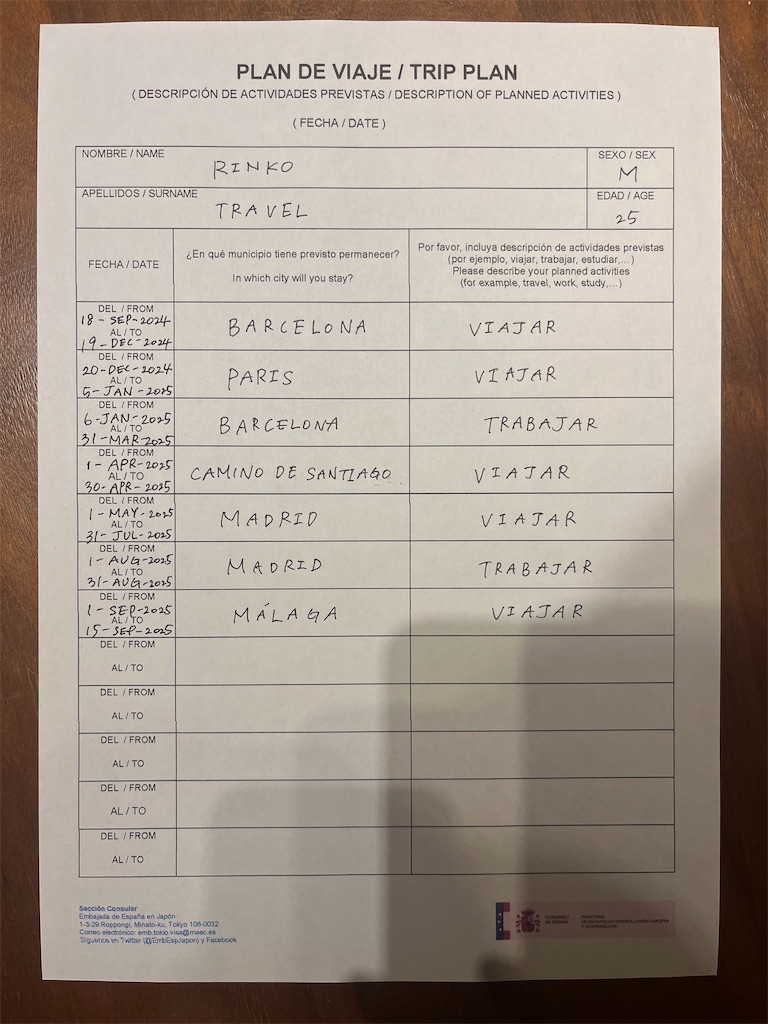 PLAN DE VIAJE / TRIP PLAN
( DESCRIPCIÓN DE ACTIVIDADES PREVISTAS / DESCRIPTION OF PLANNED ACTIVITIES )
( FECHA / DATE )
NOMBRE / NAME
RINKO
SEXO / SEX
M
APELLIDOS / SURNAME
TRAVEL
EDAD / AGE
25
FECHA / DATE
¿En qué municipio tiene previsto permanecer?
In which city will you stay?
Por favor, incluya descripción de actividades previstas
(por ejemplo, viajar, trabajar, estudiar,...)
Please describe your planned activities
(for example, travel, work, study,...)
DEL / FROM
18 - SEP - 2024
AL / TO
19 - DEC - 2024
BARCELONA
VIAJAR
DEL / FROM
20 - DEC - 2024
AL / TO
5 - JAN - 2025
PARIS
VIAJAR
DEL / FROM
6 - JAN - 2025
AL / TO
31 - MAR - 2025
BARCELONA
TRABAJAR
DEL / FROM
1 - APR - 2025
AL / TO
30 - APR - 2025
CAMINO DE SANTIAGO
VIAJAR
DEL / FROM
1 - MAY - 2025
AL / TO
31 - JUL - 2025
MADRID
VIAJAR
DEL / FROM
1 - AUG - 2025
AL / TO
31 - AUG - 2025
MADRID
TRABAJAR
DEL / FROM
1 - SEP - 2025
AL / TO
15 - SEP - 2025
MÁLAGA
VIAJAR
DEL / FROM
AL / TO
DEL / FROM
AL / TO
DEL / FROM
AL / TO
DEL / FROM
AL / TO
DEL / FROM
AL / TO
Sección Consular
Embajada de España en Japón
1-3-29 Roppongi, Minato-ku, Tokyo 106-0032
Correo electrónico: emb.tokio.visa@maec.es
Síguenos en Twitter (@EmbEspJapon) y Facebook
GOBIERNO
DE ESPAÑA
MINISTERIO
DE ASUNTOS EXTERIORES, UNIÓN EUROPEA
Y COOPERACIÓN